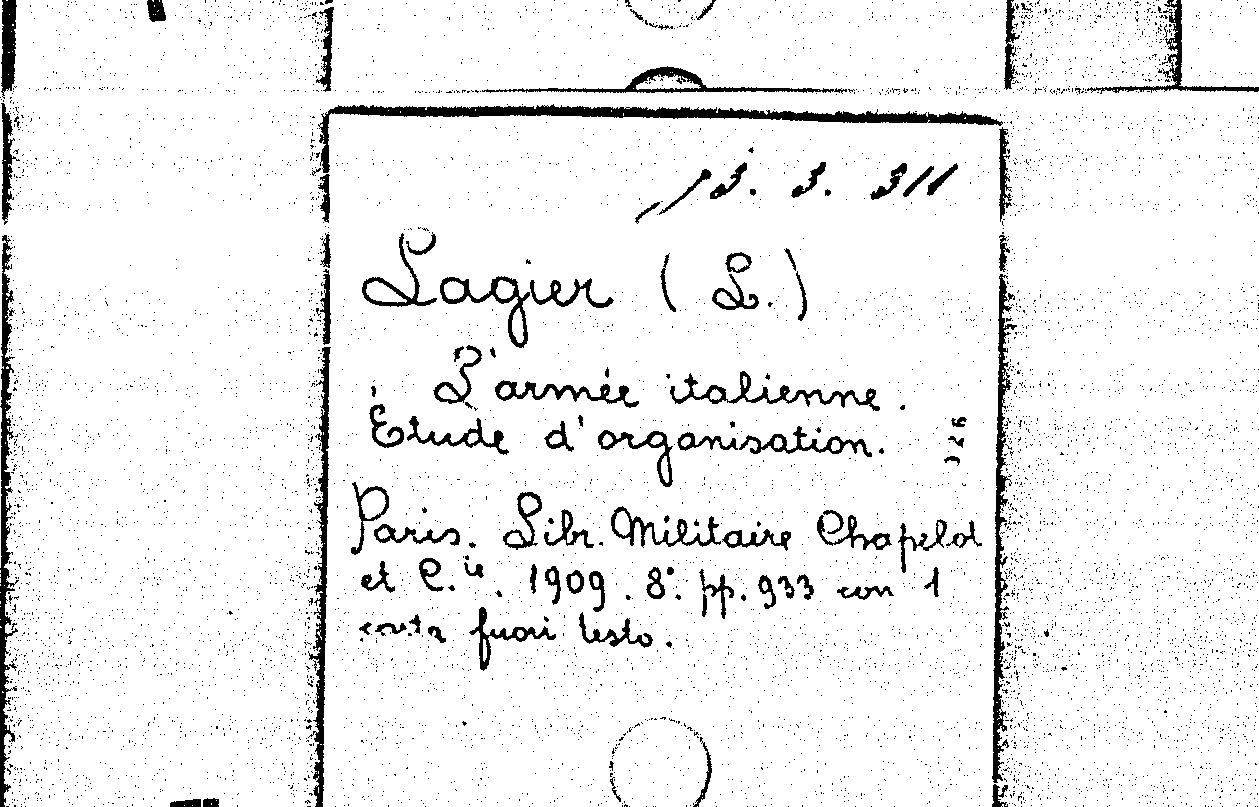 13. 3. 311
Lagier (L.)
L'armée italienne.
Étude d'organisation.
Paris. Libr. Militaire Chapelot
et C.ie. 1909. 8.° pp. 933 con 1
carta fuori testo.